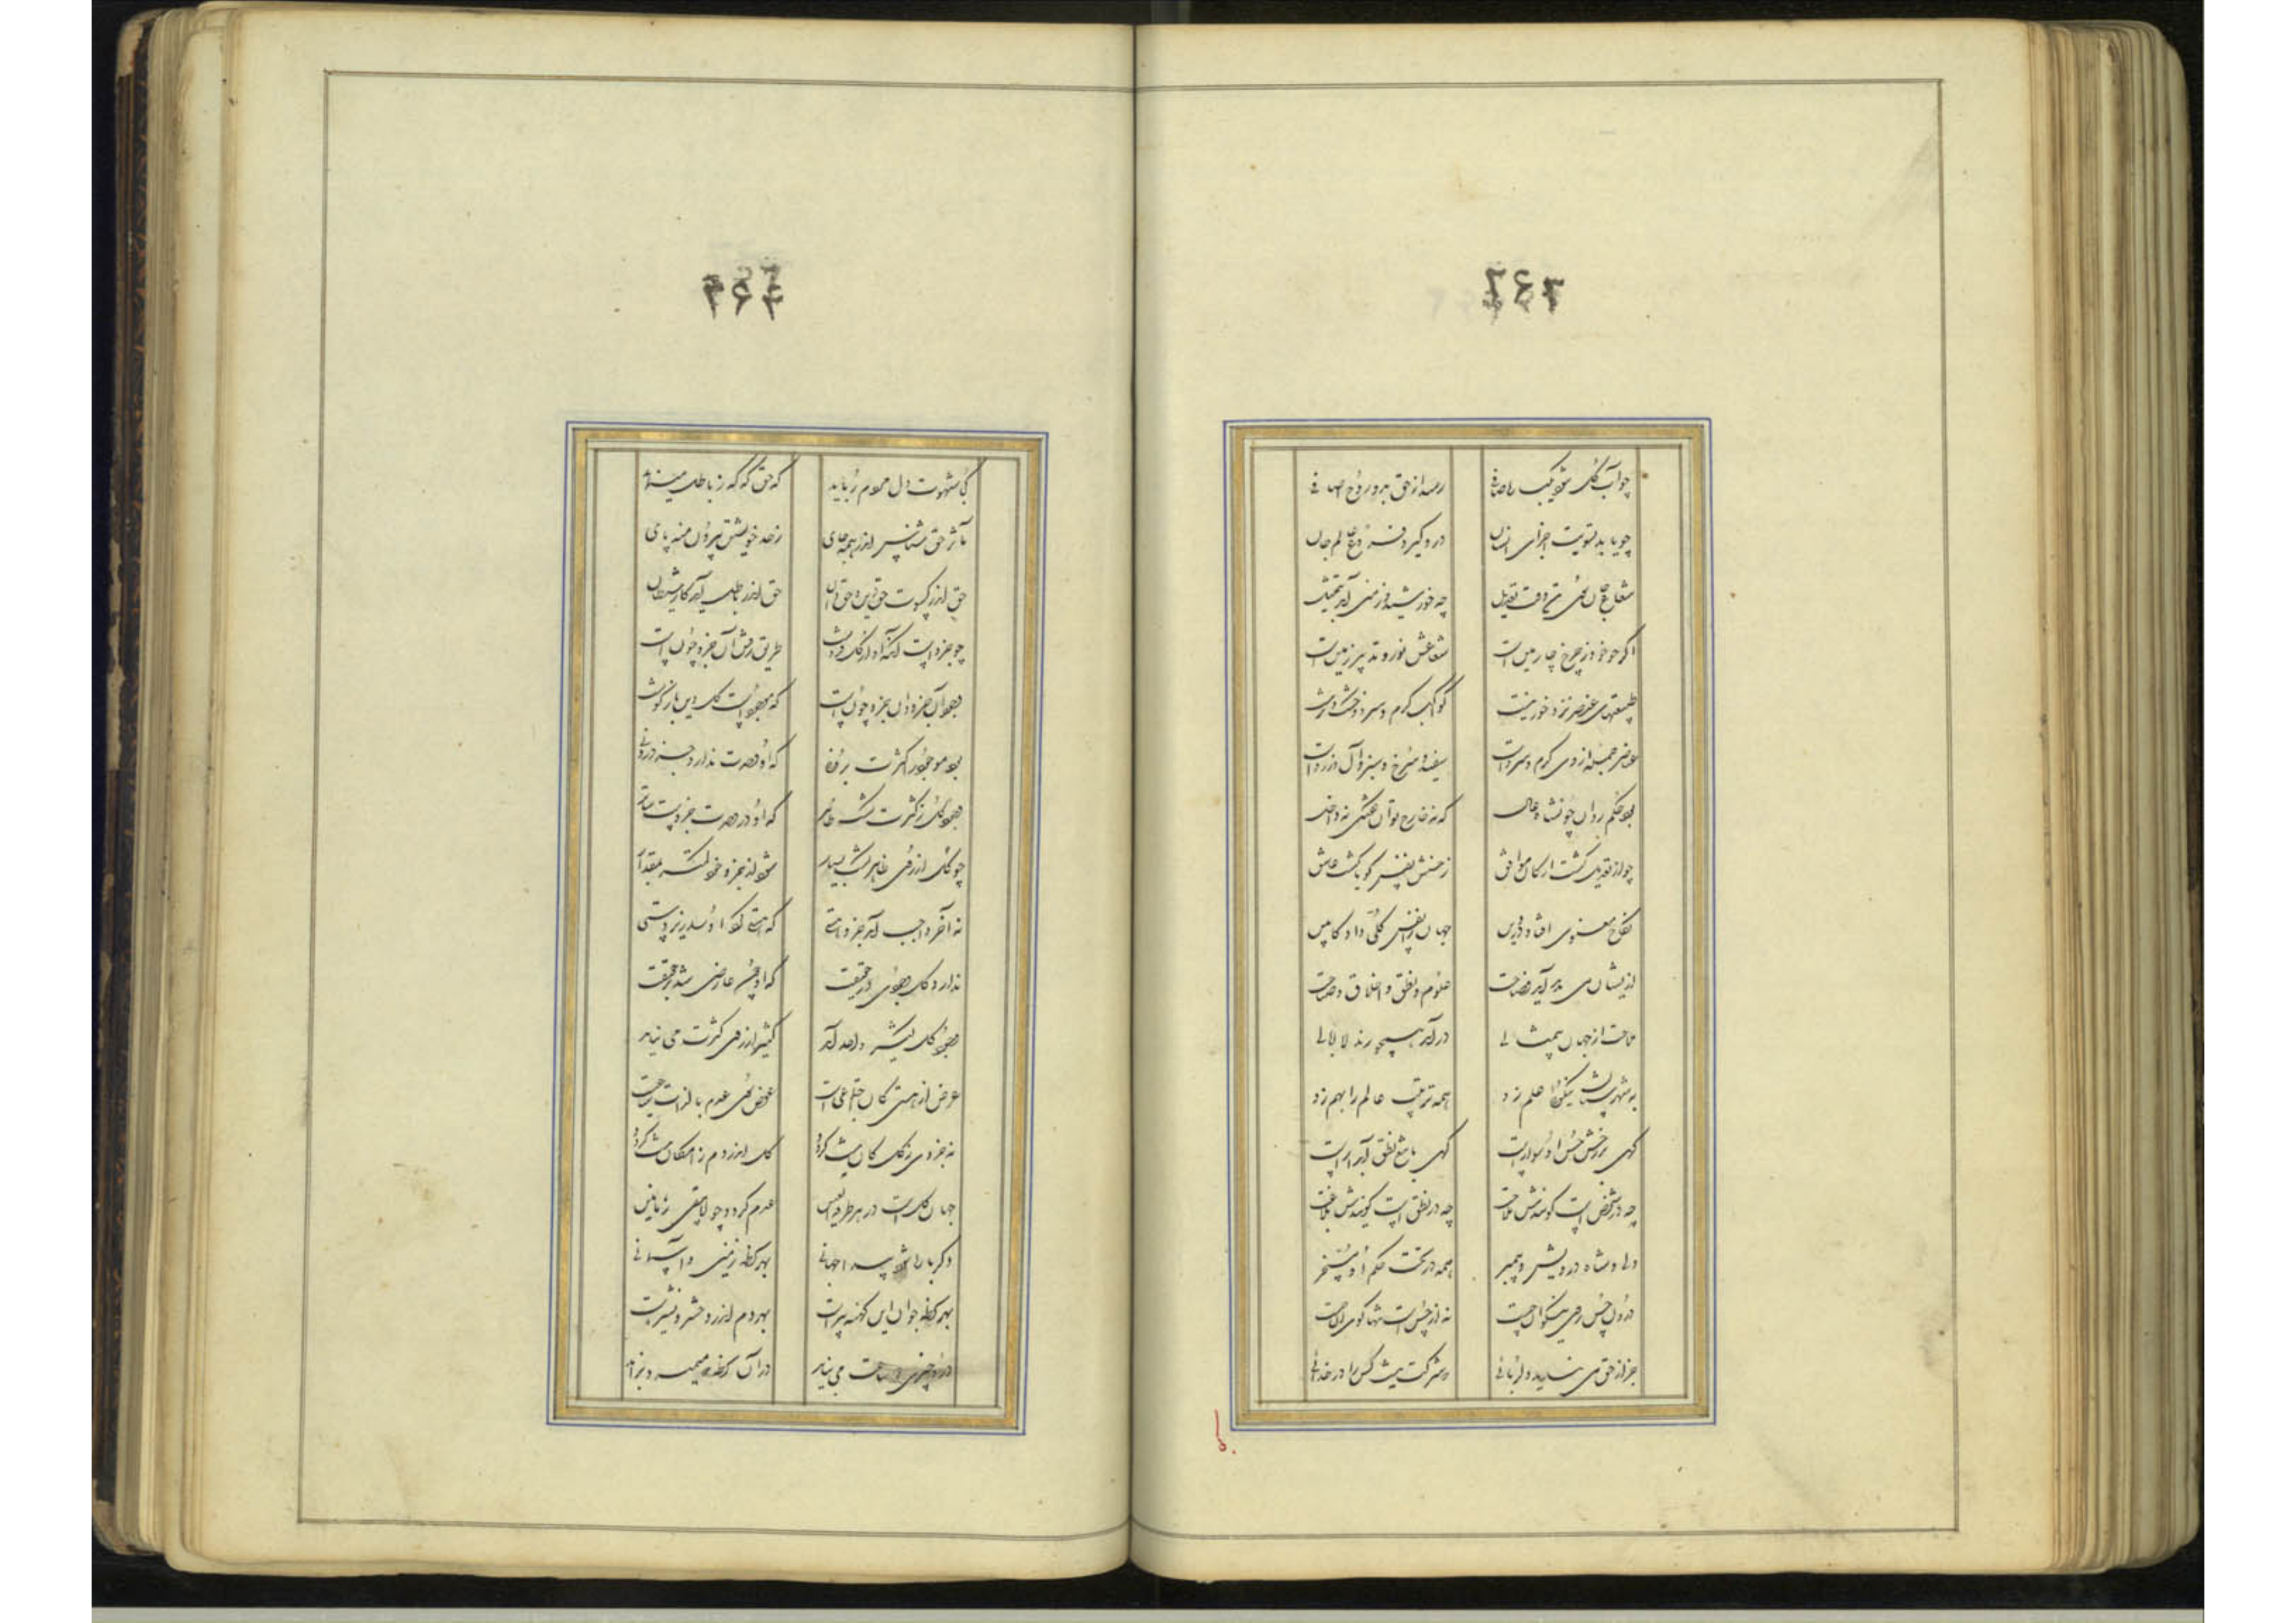 چو آب و گل شود یکباره صافی رسد از حق بدو روح اضافی
چو یابد تسویت اجزای انسان درو گیرد فروغ عالم جان
شعاع جان سوی تن وقت تعدیل چه خورشید و زمین آمد بتمثیل
اگرچه خور ز چرخ چارمین است شعاعش نور و تدبیر زمین است
طبیعتهای عنصر نزد خور نیست کواکب گرم و سرد و خشک و تر نیست
عناصر جمله از وی گرم و سرد است سفید و سرخ و سبز و آل و زرد است
بود حکمش روان چون شاه عادل که نه خارج توان گفتش نه داخل
چو از تعدیل گشت ارکان موافق ز حسنش نفس گویا گشت عاشق
نکاح معنوی افتاد در دین جهان را نفس کلی داد کابین
از یشان می پدید آمد فصاحت علوم و نطق و اخلاق و صباحت
ملاحت از جهان بیمثالی درآمد همچو رند لاابالی
به شهرستان نیکوئی علم زد همه ترتیب عالم را بهم زد
گهی بر رخش حسن او شهسوار است گهی با تیغ نطق آبدار است
چه در شخص است گویندش ملاحت چه در نطق است گویندش بلاغت
ولی و شاه و درویش و پیمبر همه در تحت حکم او مسخر
درون حسن روی نیکوان چیست نه از حسن است تنها گوی آن چیست
جز از حق می نیاید دلربائی که شرکت نیست کس را در خدائی
کی شهوت دل مردم رباید که حق گه گه ز باطل مینماید
مآثر حق شناس اندر همه جای ز حد خویشتن بیرون منه پای
حق اندر کسوت حق بین و حق دان حق اندر باطل آمد کار شیطان
چو جزو است آنکه او از کل فزونست طریق رفتن آن جزو چون است
وجود آن جزو دان که موجود است کل وین باژگونست
بود موجود را کثرت برونی که او وحدت ندارد جز درونی
وجود کل ز کثرت گشت ظاهر که او در وحدت جزو است سائر
چو کل از روی ظاهر هست بسیار شود از جزو خود کمتر بمقدار
نه آخر واجب آمد جزو هستی که هستی کرد او را زیردستی
ندارد کل وجودی در حقیقت که او چون عارضی شد بر حقیقت
وجود کل کثیر و واحد آمد کثیر از روی کثرت می نماید
عرض از هستی کان اجتماعی است عرض سوی عدم بالذات ساعیست
بهر جزوی ز کل کان نیست گردد کل اندر دم ز امکان نیست گردد
جهان کل است در هر طرفة العین عدم گردد و لایبقی زمانین
دگر باره شود پیدا جهانی بهر لحظه زمین و آسمانی
بهر لحظه جوان این کهنه پیر است بهر دم اندرو حشر و نشیر است
درو چیزی دو ساعت می نپاید در آن لحظه که میمیرد بزاید